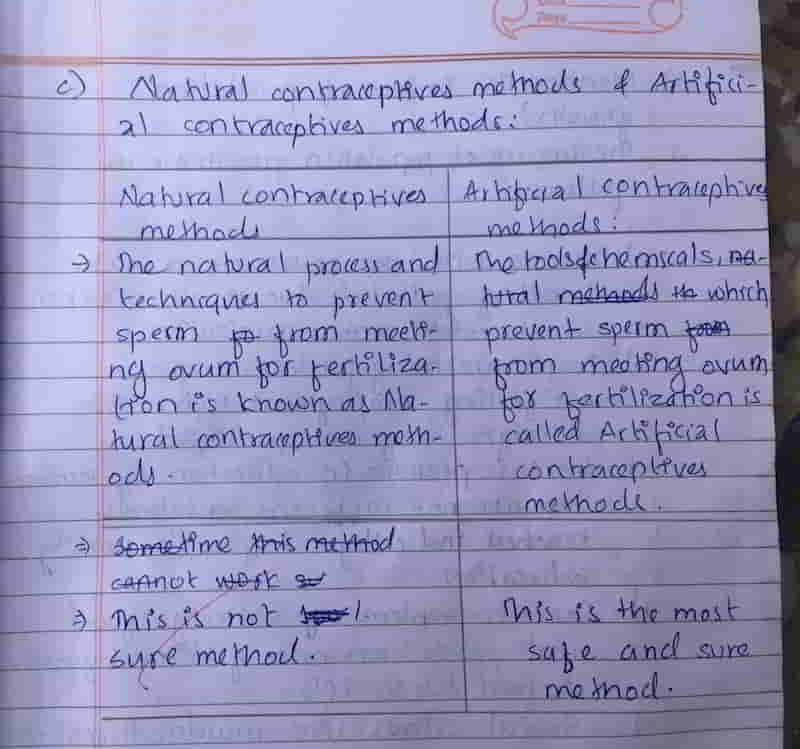 c) Natural contraceptives methods & Artifici-
al contraceptives methods:
Natural contraceptives
methods
→ The natural process and
techniques to prevent
sperm from meeti-
ng ovum for fertiliza-
tion is known as Na-
tural contraceptives meth-
ods.
⇒ sometime this method
cannot work
⇒ This is not
sure method.
Artificial contraceptives
methods:
The tools&chemicals, na-
tural methods which
prevent sperm
from meeting ovum
for fertilization is
called Artificial
contraceptives
methods.
This is the most
safe and sure
method.